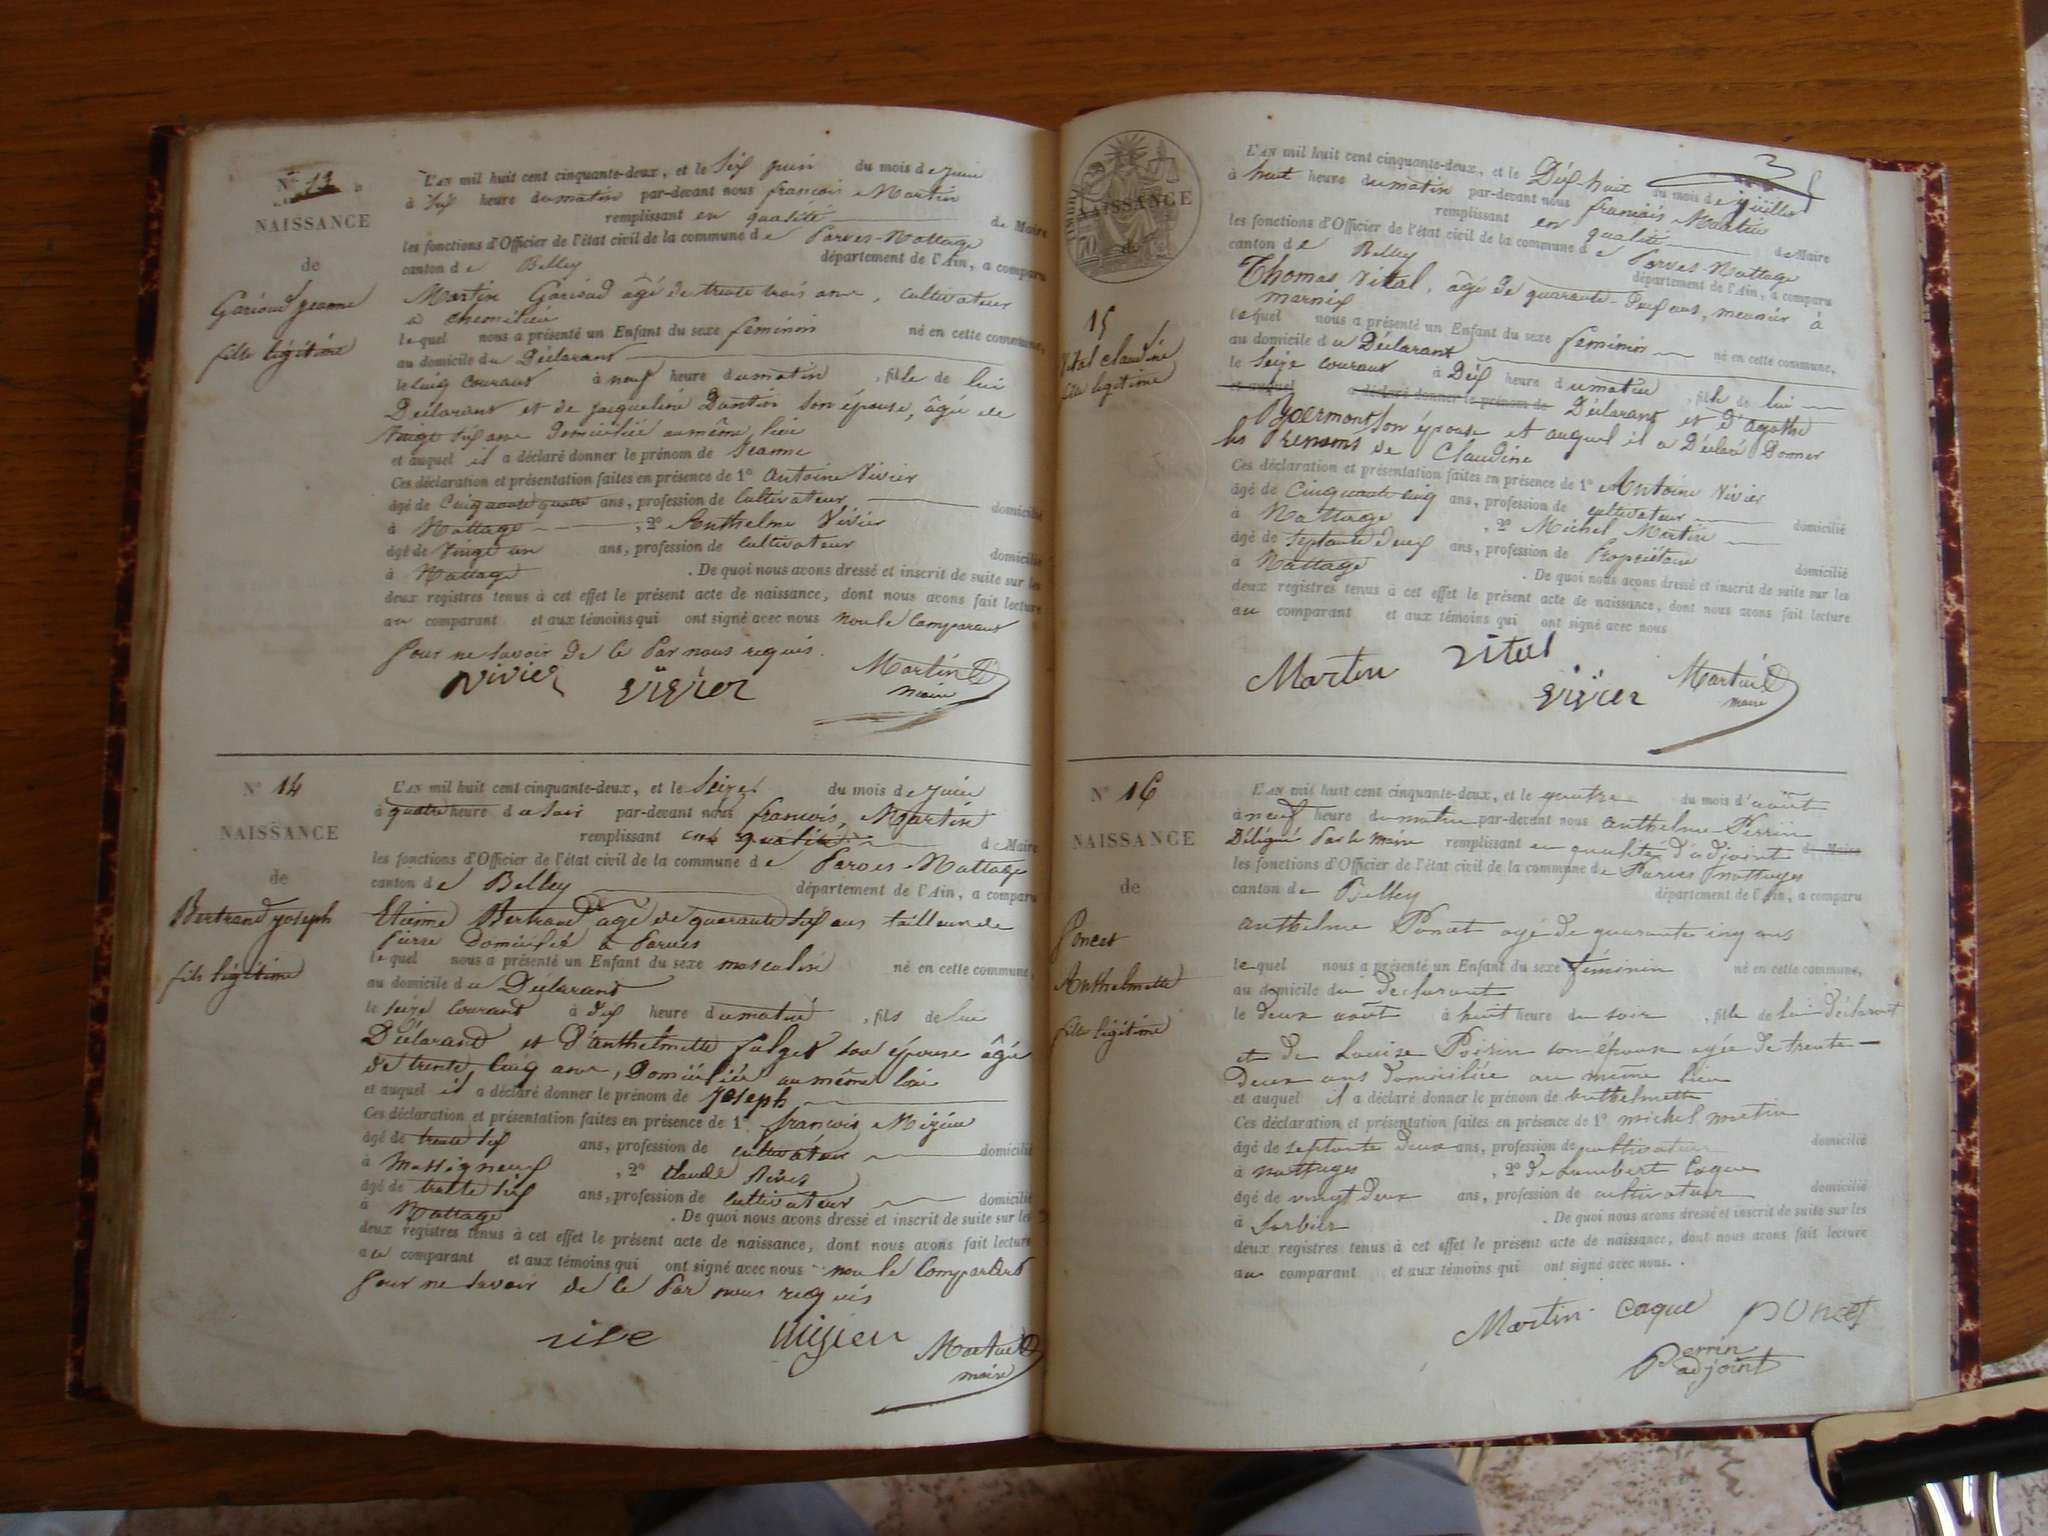 Nº 13
NAISSANCE
de
Garioud jeanne
fille légitime
L'AN mil huit cent cinquante-deux, et le six juin du mois de juin
à six heure du matin par-devant nous françois Martin
remplissant en qualité de Maire
les fonctions d'Officier de l'état civil de la commune de Parves-Nattage
canton de Belley département de l'Ain, a comparu
Martin Garioud âgé de trente trois ans, cultivateur
à chemilieu
lequel nous a présenté un Enfant du sexe feminin né en cette commune,
au domicile du Déclarant
le cinq courant à neuf heure du matin, fille de lui
Déclarant et de jacqueline Dantin son épouse, âgée de
vingt six ans Domiciliée au même lieu
et auquel il a déclaré donner le prénom de Jeanne
Ces déclaration et présentation faites en présence de 1º Antoine Vivier
âgé de Cinquante quatre ans, profession de Cultivateur domicilié
à Nattage, 2º Anthelme Vivier
âgé de vingt un ans, profession de cultivateur domicilié
à Nattage. De quoi nous avons dressé et inscrit de suite sur les
deux registres tenus à cet effet le présent acte de naissance, dont nous avons fait lecture
au comparant et aux témoins qui ont signé avec nous non le Comparant
Pour ne savoir de ce Par nous requis.
Vivier Vivier Martin
maire
Nº 14
NAISSANCE
de
Bertrand joseph
fils légitime
L'AN mil huit cent cinquante-deux, et le Seize du mois de juin
à quatre heure du soir par-devant nous françois, Martin
remplissant en qualité de Maire
les fonctions d'Officier de l'état civil de la commune de Parves-Nattage
canton de Belley département de l'Ain, a comparu
Etienne Bertrand âgé de quarante six ans tailleur de
pierre Domicilié à Parves
lequel nous a présenté un Enfant du sexe masculin né en cette commune,
au domicile du Déclarant
le seize courant à dix heure du matin, fils de lui
Déclarand et d'anthelmette son épouse âgée
de trente cinq ans, Domiciliée au même lieu
et auquel il a déclaré donner le prénom de Joseph
Ces déclaration et présentation faites en présence de 1º françois
âgé de trente six ans, profession de cultivateur domicilié
à Massigneux, 2º Claude
âgé de trente six ans, profession de cultivateur domicilié
à Nattage. De quoi nous avons dressé et inscrit de suite sur les
deux registres tenus à cet effet le présent acte de naissance, dont nous avons fait lecture
au comparant et aux témoins qui ont signé avec nous non le Comparant
Pour ne savoir de ce Par nous requis
Martin
maire
NAISSANCE
de
15
Vital Claudine
fille légitime
L'AN mil huit cent cinquante-deux, et le Dix-huit du mois de juillet
à huit heure du matin par-devant nous françois Martin
remplissant en qualité de Maire
les fonctions d'Officier de l'état civil de la commune de Parves-Nattage
canton de Belley département de l'Ain, a comparu
Thomas Vital, âgé de quarante-deux ans, meunier à
marnix
lequel nous a présenté un Enfant du sexe feminin né en cette commune,
au domicile du Déclarant
le Seize courant à Dix heure du matin, fille de lui
et auquel a déclaré donner le prénom de Déclarant et d'agathe
son épouse et auquel il a Déclaré Donner
les Prenoms de Claudine
Ces déclaration et présentation faites en présence de 1º Antoine Vivier
âgé de cinquante cinq ans, profession de cultivateur domicilié
à Nattage, 2º Michel Martin
âgé de septante deux ans, profession de Propriétaire domicilié
à Nattage. De quoi nous avons dressé et inscrit de suite sur les
deux registres tenus à cet effet le présent acte de naissance, dont nous avons fait lecture
au comparant et aux témoins qui ont signé avec nous
Martin Vital Vivier Martin
maire
Nº 16
NAISSANCE
de
Poncet
Anthelmette
fille légitime
L'AN mil huit cent cinquante-deux, et le quatre du mois d'août
à neuf heure du matin par-devant nous anthelme Perrin
Délégué Par le Maire remplissant en qualité d'adjoint de Maire
les fonctions d'Officier de l'état civil de la commune de Parves Nattages
canton de Belley département de l'Ain, a comparu
anthelme Poncet agé de quarante cinq ans
lequel nous a présenté un Enfant du sexe feminin né en cette commune,
au domicile du declarant
le deux août à huit heure du soir, fille de lui déclarant
et de Louise Poisin son épouse agée de trente-
deux ans domiciliée au même lieu
et auquel il a déclaré donner le prénom de anthelmette
Ces déclaration et présentation faites en présence de 1º michel martin
âgé de septante deux ans, profession de cultivateur domicilié
à nattages, 2º de Lambert Coque
âgé de vingt deux ans, profession de cultivateur domicilié
à Sorbier. De quoi nous avons dressé et inscrit de suite sur les
deux registres tenus à cet effet le présent acte de naissance, dont nous avons fait lecture
au comparant et aux témoins qui ont signé avec nous.
Martin coque poncet
Perrin
adjoint